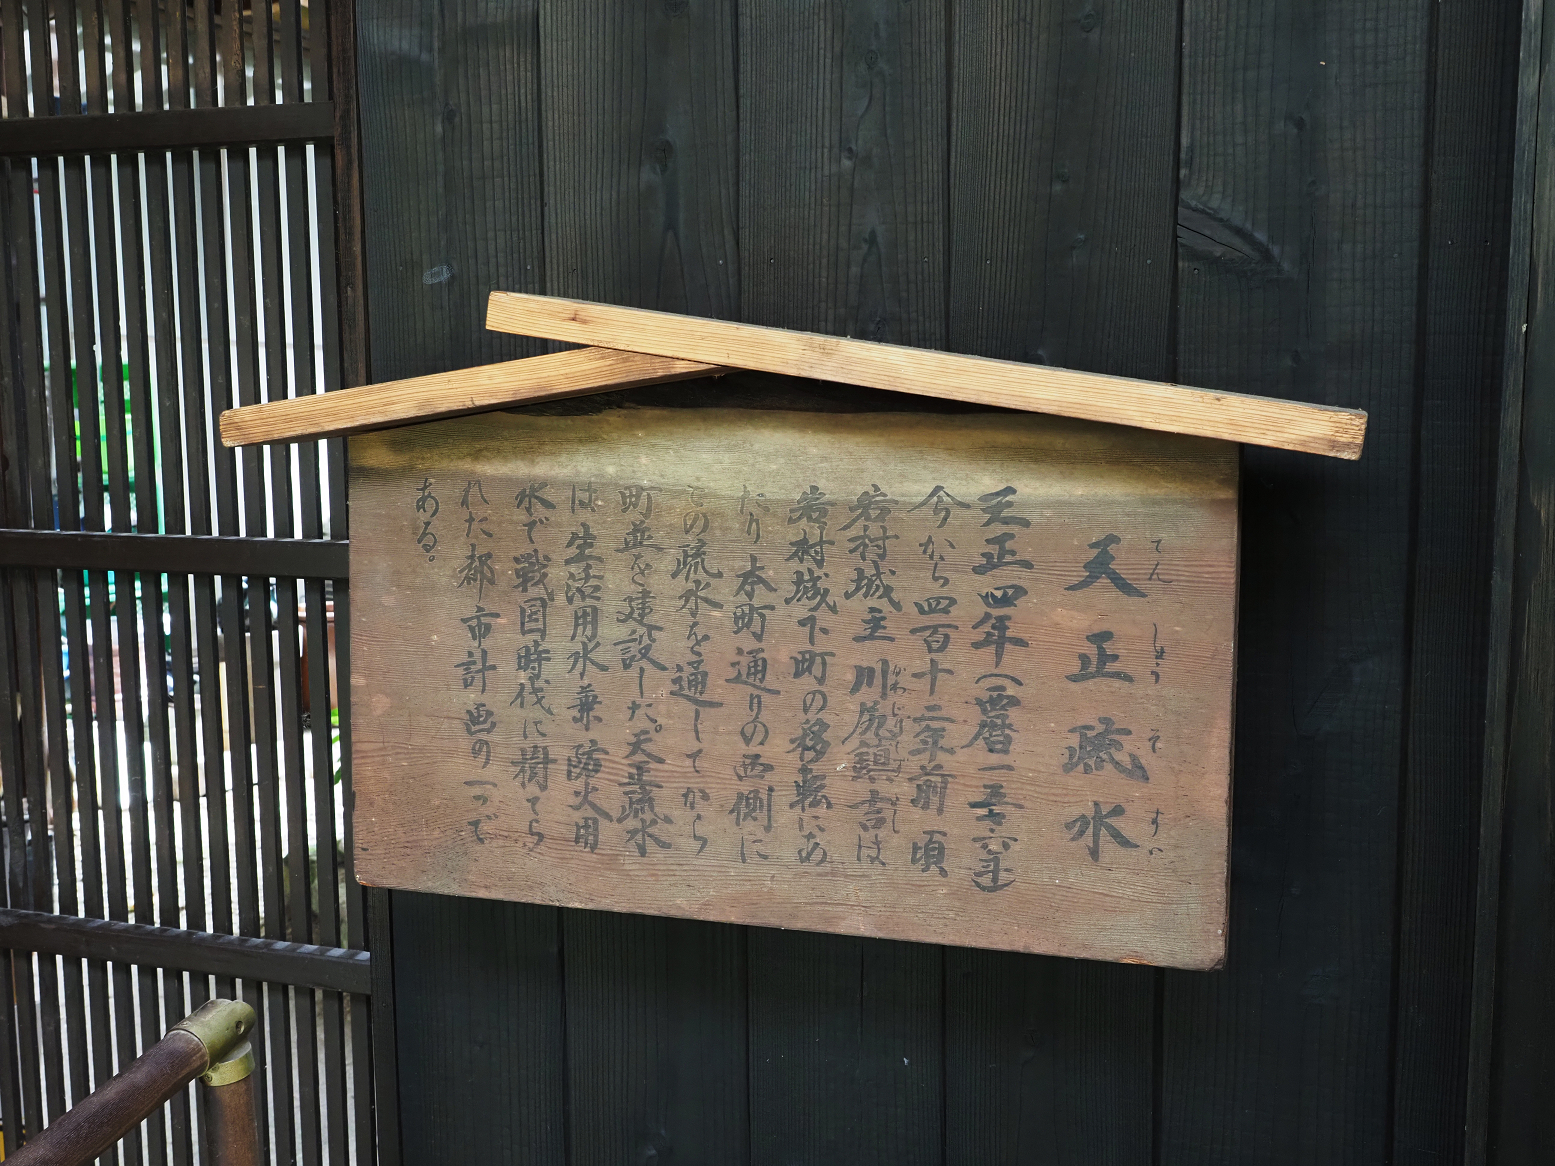 天正疏水
てんしょうそすい
天正四年(西暦一五七六年)
今から四百十二年前頃
岩村城主川尻鎮吉は
かわじりしげよし
岩村城下町の移転にあ
たり本町通りの西側に
この疏水を通してから
町並を建設した。天正疏水
は生活用水兼防火用
水で戦国時代に樹てら
れた都市計画の一つで
ある。